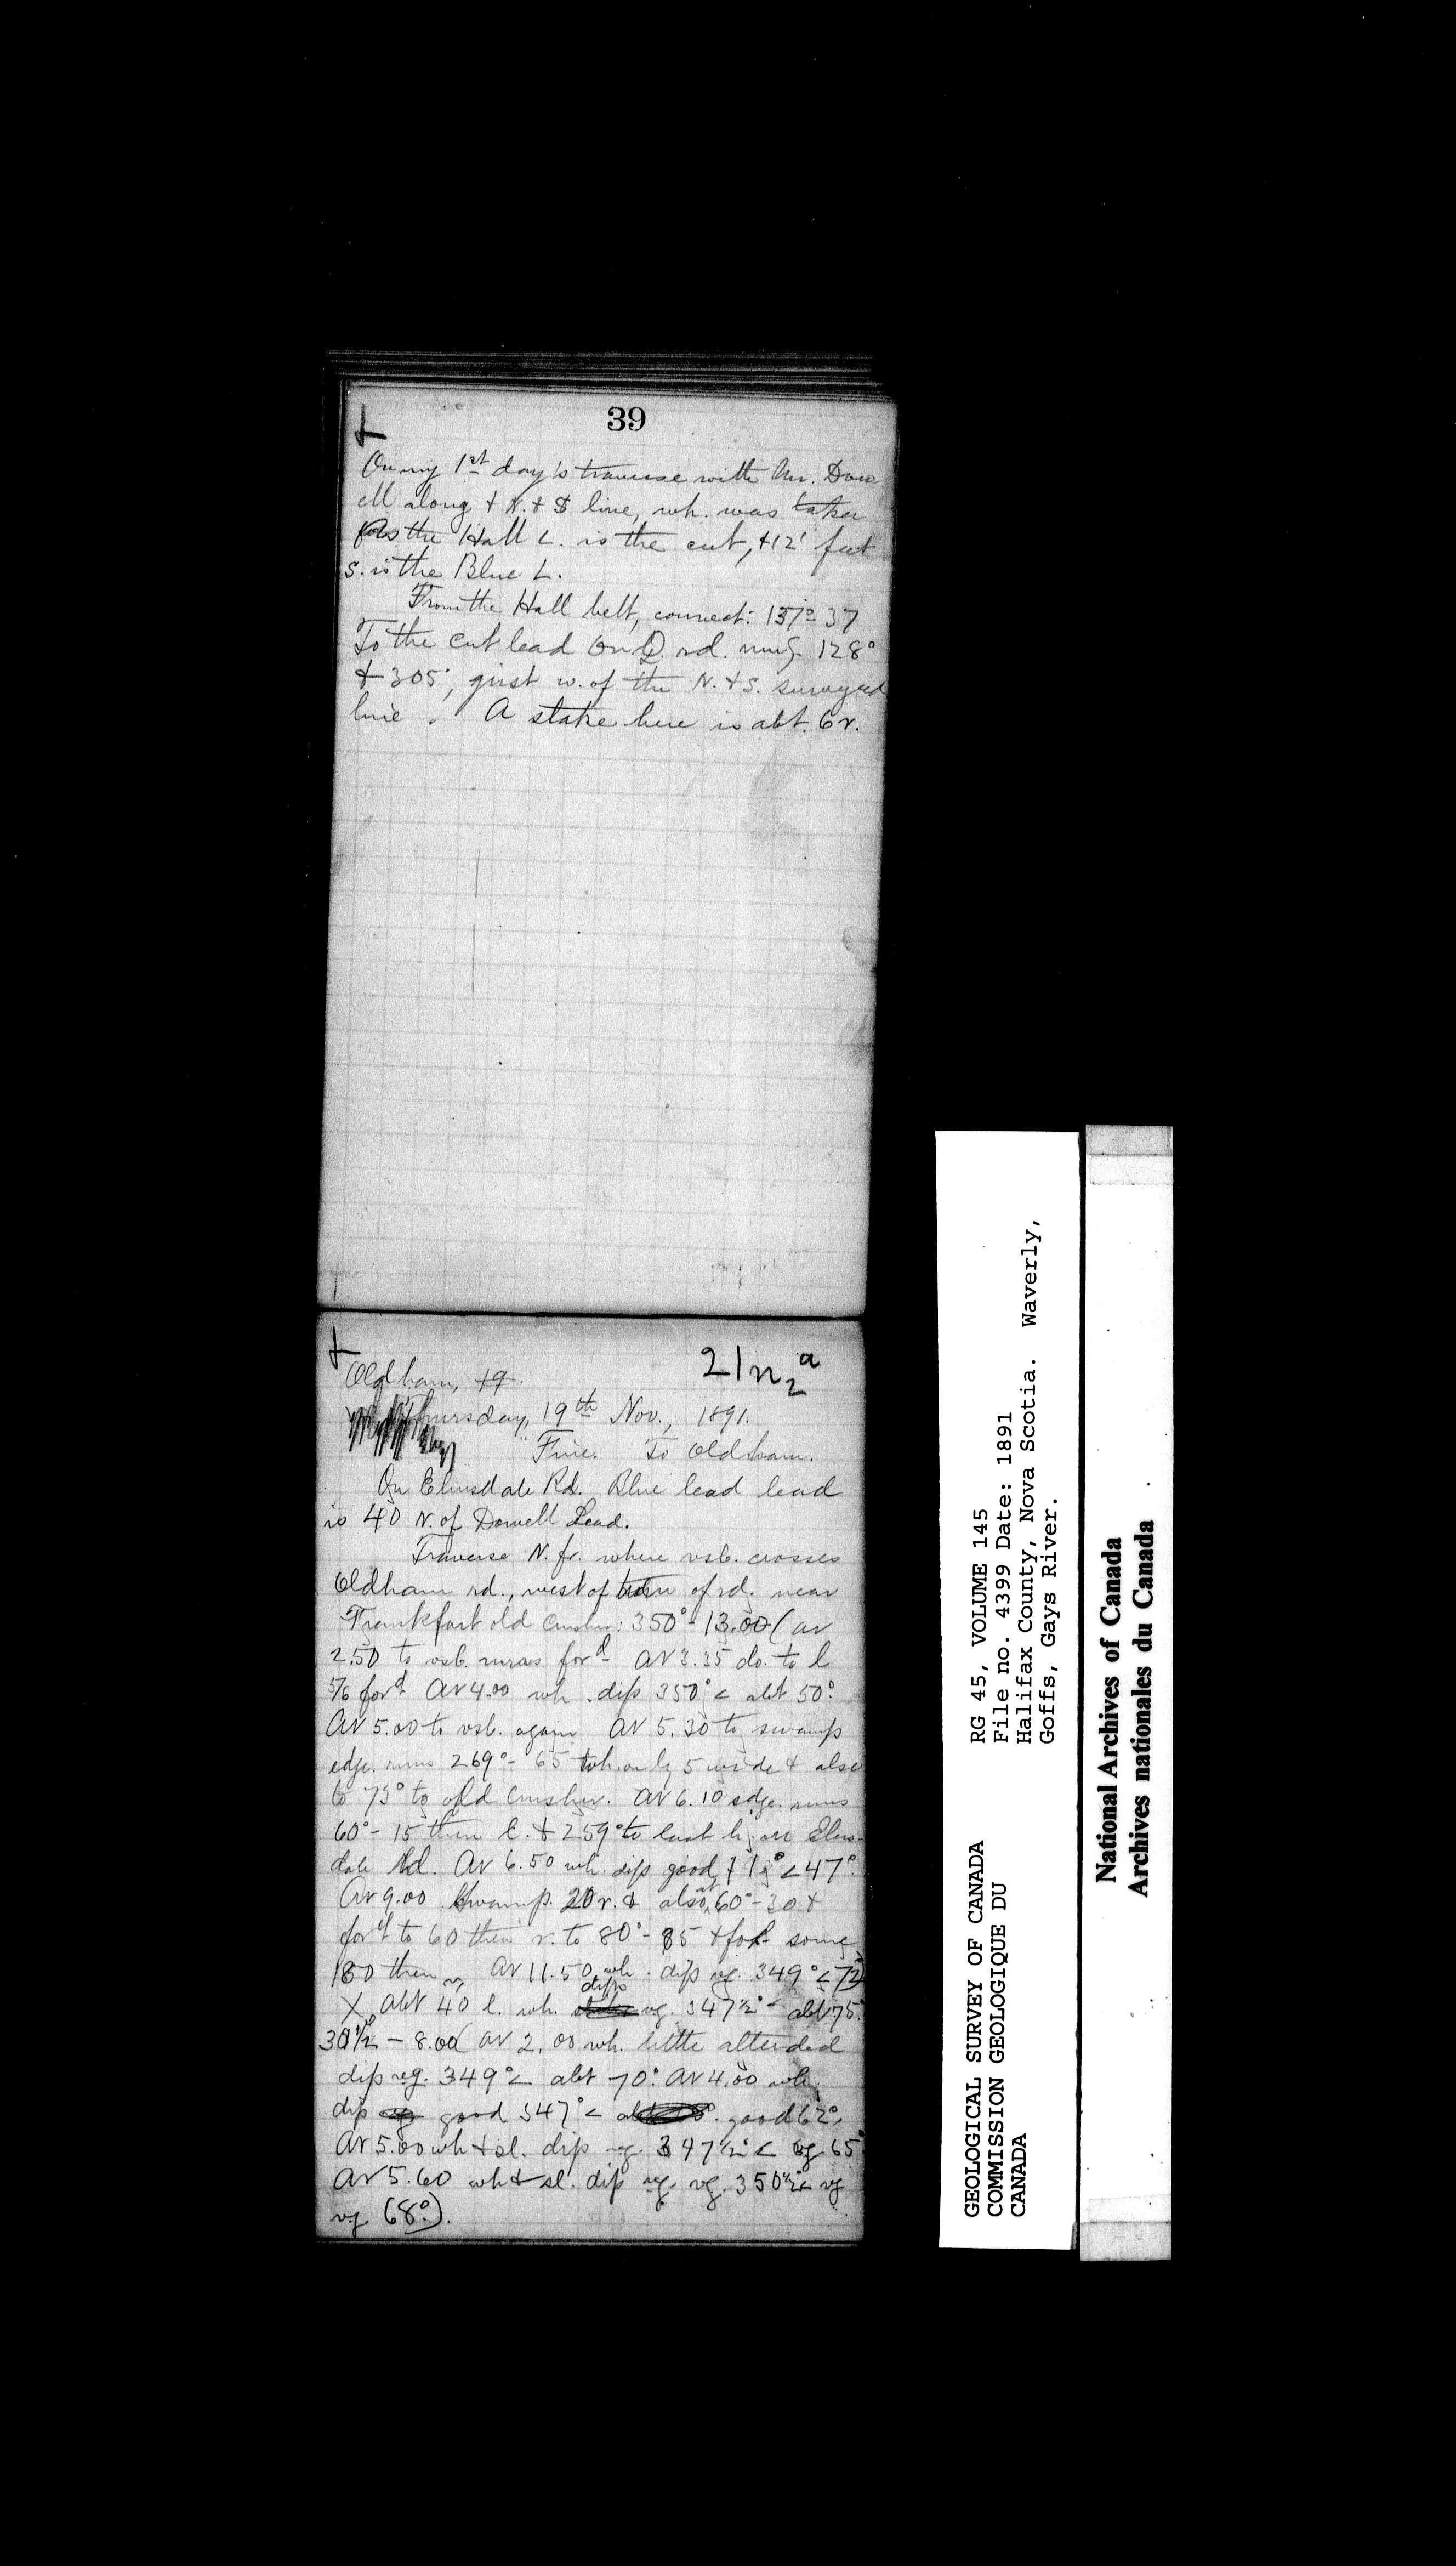 39
On my 1st day's traverse with Mr. Dow
ell along + N. + S line, wh. was taken
as the Hall L. is the cut, +12' feet
S. is the Blue L.
From the Hall belt, connect: 137° 37
To the cut lead on rd. rung. 128°
+ 305°, just w. of the N. + S. surveyed
line. A stake here is abt. 6 r.
Oldham,
21 n 2 a
Thursday, 19th Nov., 1891.
Fine. To Oldham.
On Elmsdale Rd. Blue lead lead
is 40 N. of Dowell Lead.
Traverse N. fr. where vsb. crosses
Oldham rd., west of turn of rd. near
Frankfort old Crusher: 350° - 13.00 (av
2.50 to vsb. runs ford av 3.35 do. to l
5/6 ford av 4.00 wh. dip 350° < abt 50°.
av 5.00 to vsb. again av 5.30 to swamp
edge. runs 269° - 65 wh. only 5 wide + also
to 75° to old Crusher. av 6.10 edge. runs
60° - 15 then l. + 259° to last Elms-
dale Rd. av 6.50 wh. dip good < 47°.
av 9.00 Swamp. 20 r. + also at 60° - 30 +
ford to 60 then r. to 80° - 85 + for some
180 then av 11.50 wh. dip vg. 349° < 72
X abt 40 l. wh. dips vg. 347½° - abt 75°.
- 8.00 (av 2.00 wh. little altered
dip reg. 349° < abt 70°. av 4.00 wh.
dip good 347° < good 62°.
av 5.00 wh + sl. dip vg. 347½° < vg 65°
av 5.60 wh + sl. dip vg. 350½° < vg
vg (68°).
GEOLOGICAL SURVEY OF CANADA
COMMISSION GEOLOGIQUE DU
CANADA
RG 45, VOLUME 145
File no. 4399 Date: 1891
Halifax County, Nova Scotia. Waverly,
Goffs, Gays River.
National Archives of Canada
Archives nationales du Canada